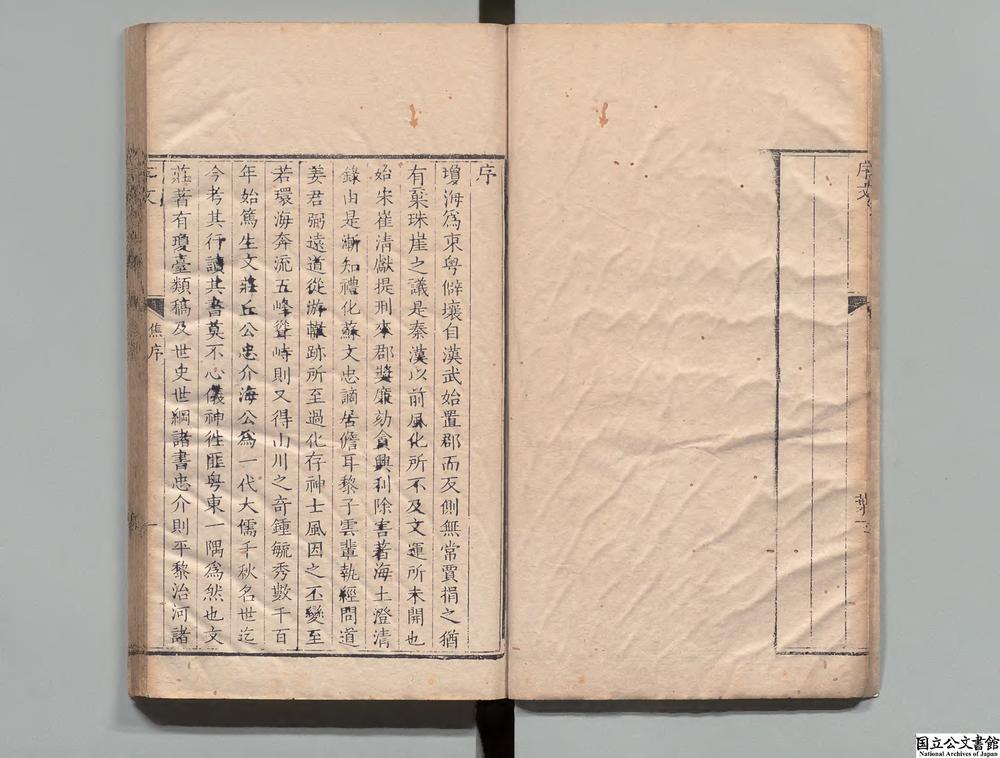 序文
葉
序
瓊海爲東粤僻壤自漢武始置郡而反側無常賈捐之猶
有棄珠崖之議是秦漢以前風化所不及文運所未開也
始宋崔清獻提刑來郡奬廉劾貪興利除害著海上澄清
錄由是漸知禮化蘇文忠謫居儋耳黎子雲輩執經問道
姜君弼遠道從游轍跡所至過化存神士風因之丕變至
若環海奔流五峰聳峙則又得山川之奇鍾毓秀數千百
年始篤生文莊丘公忠介海公爲一代大儒千秋名世迄
今考其行讀其書莫不心儀神徃匪粤東一隅爲然也文
莊著有瓊臺類稿及世史世綱諸書忠介則平黎治河諸
焦序
一
国立公文書館
National Archives of Japan